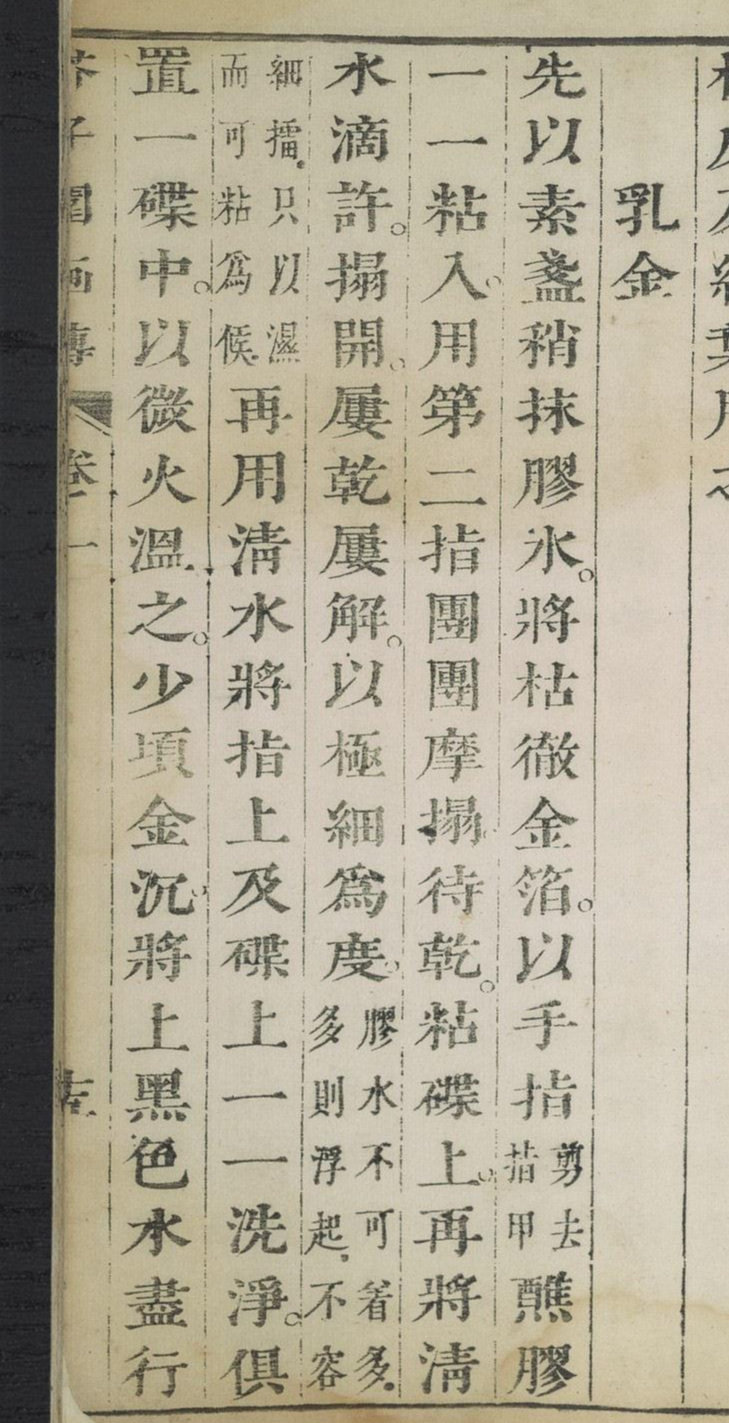 乳金
先以素盞稍抹膠水。將枯徹金箔。以手指剪去指甲醮膠
一一粘入。用第二指團團摩搨。待乾。粘碟上。再將淸
水滴許。搨開。屢乾屢解。以極細爲度。膠水不可着多。多則浮起。不容
細擂。只以濕而可粘爲候。再用淸水將指上及碟上一一洗淨。俱
置一碟中。以微火溫之。少頃金沉。將上黑色水盡行
芥子園畫傳 卷一